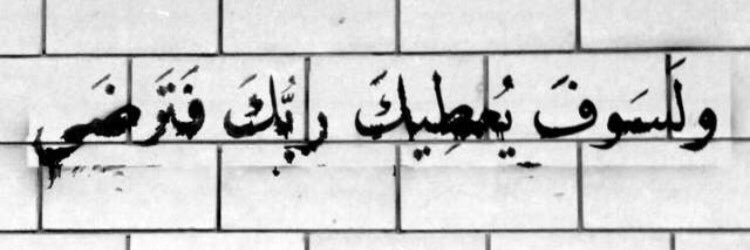 ولَسَوفَ يُعطِيكَ ربُّكَ فَتَرضَى